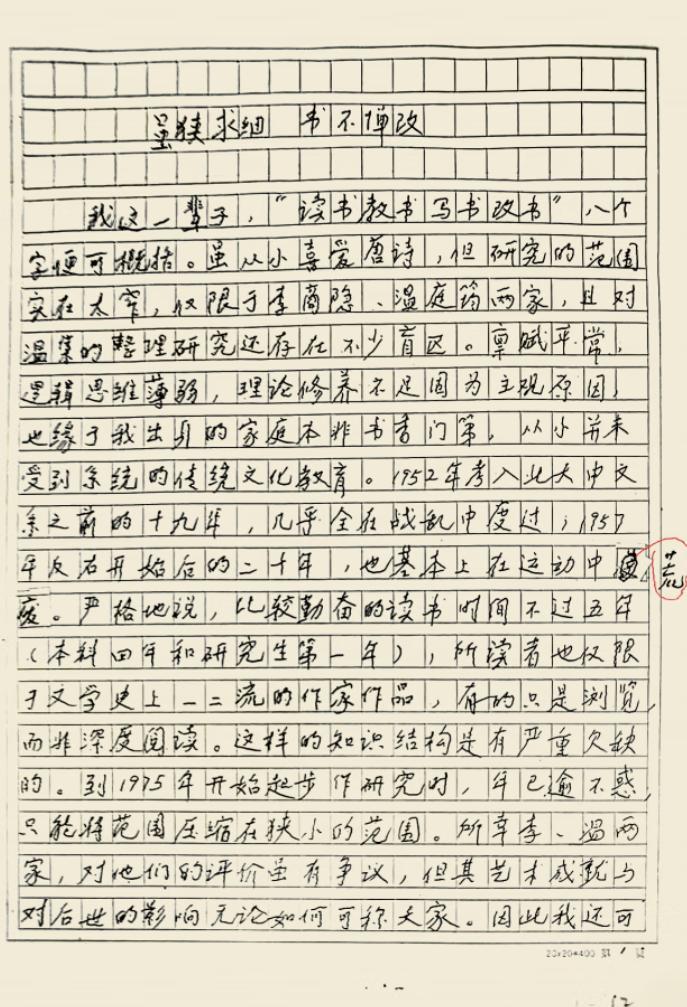 虽狭求细 书不惮改
我这一辈子，“读书教书写书改书”八个
字便可概括。虽从小喜爱唐诗，但研究的范围
实在太窄，仅限于李商隐、温庭筠两家，且对
温集的整理研究还存在不少盲区。禀赋平常，
逻辑思维薄弱，理论修养不足固为主观原因，
也缘于我出身的家庭本非书香门第，从小并未
受到系统的传统文化教育。1952年考入北大中文
系之前的十九年，几乎全在战乱中度过；1957
年反右开始后的二十年，也基本上在运动中荒
废。严格地说，比较勤奋的读书时间不过五年
（本科四年和研究生第一年），所读者也仅限
于文学史上一二流的作家作品，有的只是浏览，
而非深度阅读。这样的知识结构是有严重欠缺
的。到1975年开始起步作研究时，年已逾不惑，
只能将范围压缩在狭小的范围。所幸李、温两
家，对他们的评价虽有争议，但其艺术成就与
对后世的影响无论如何可称大家。因此我还可
20×20=400 第1页